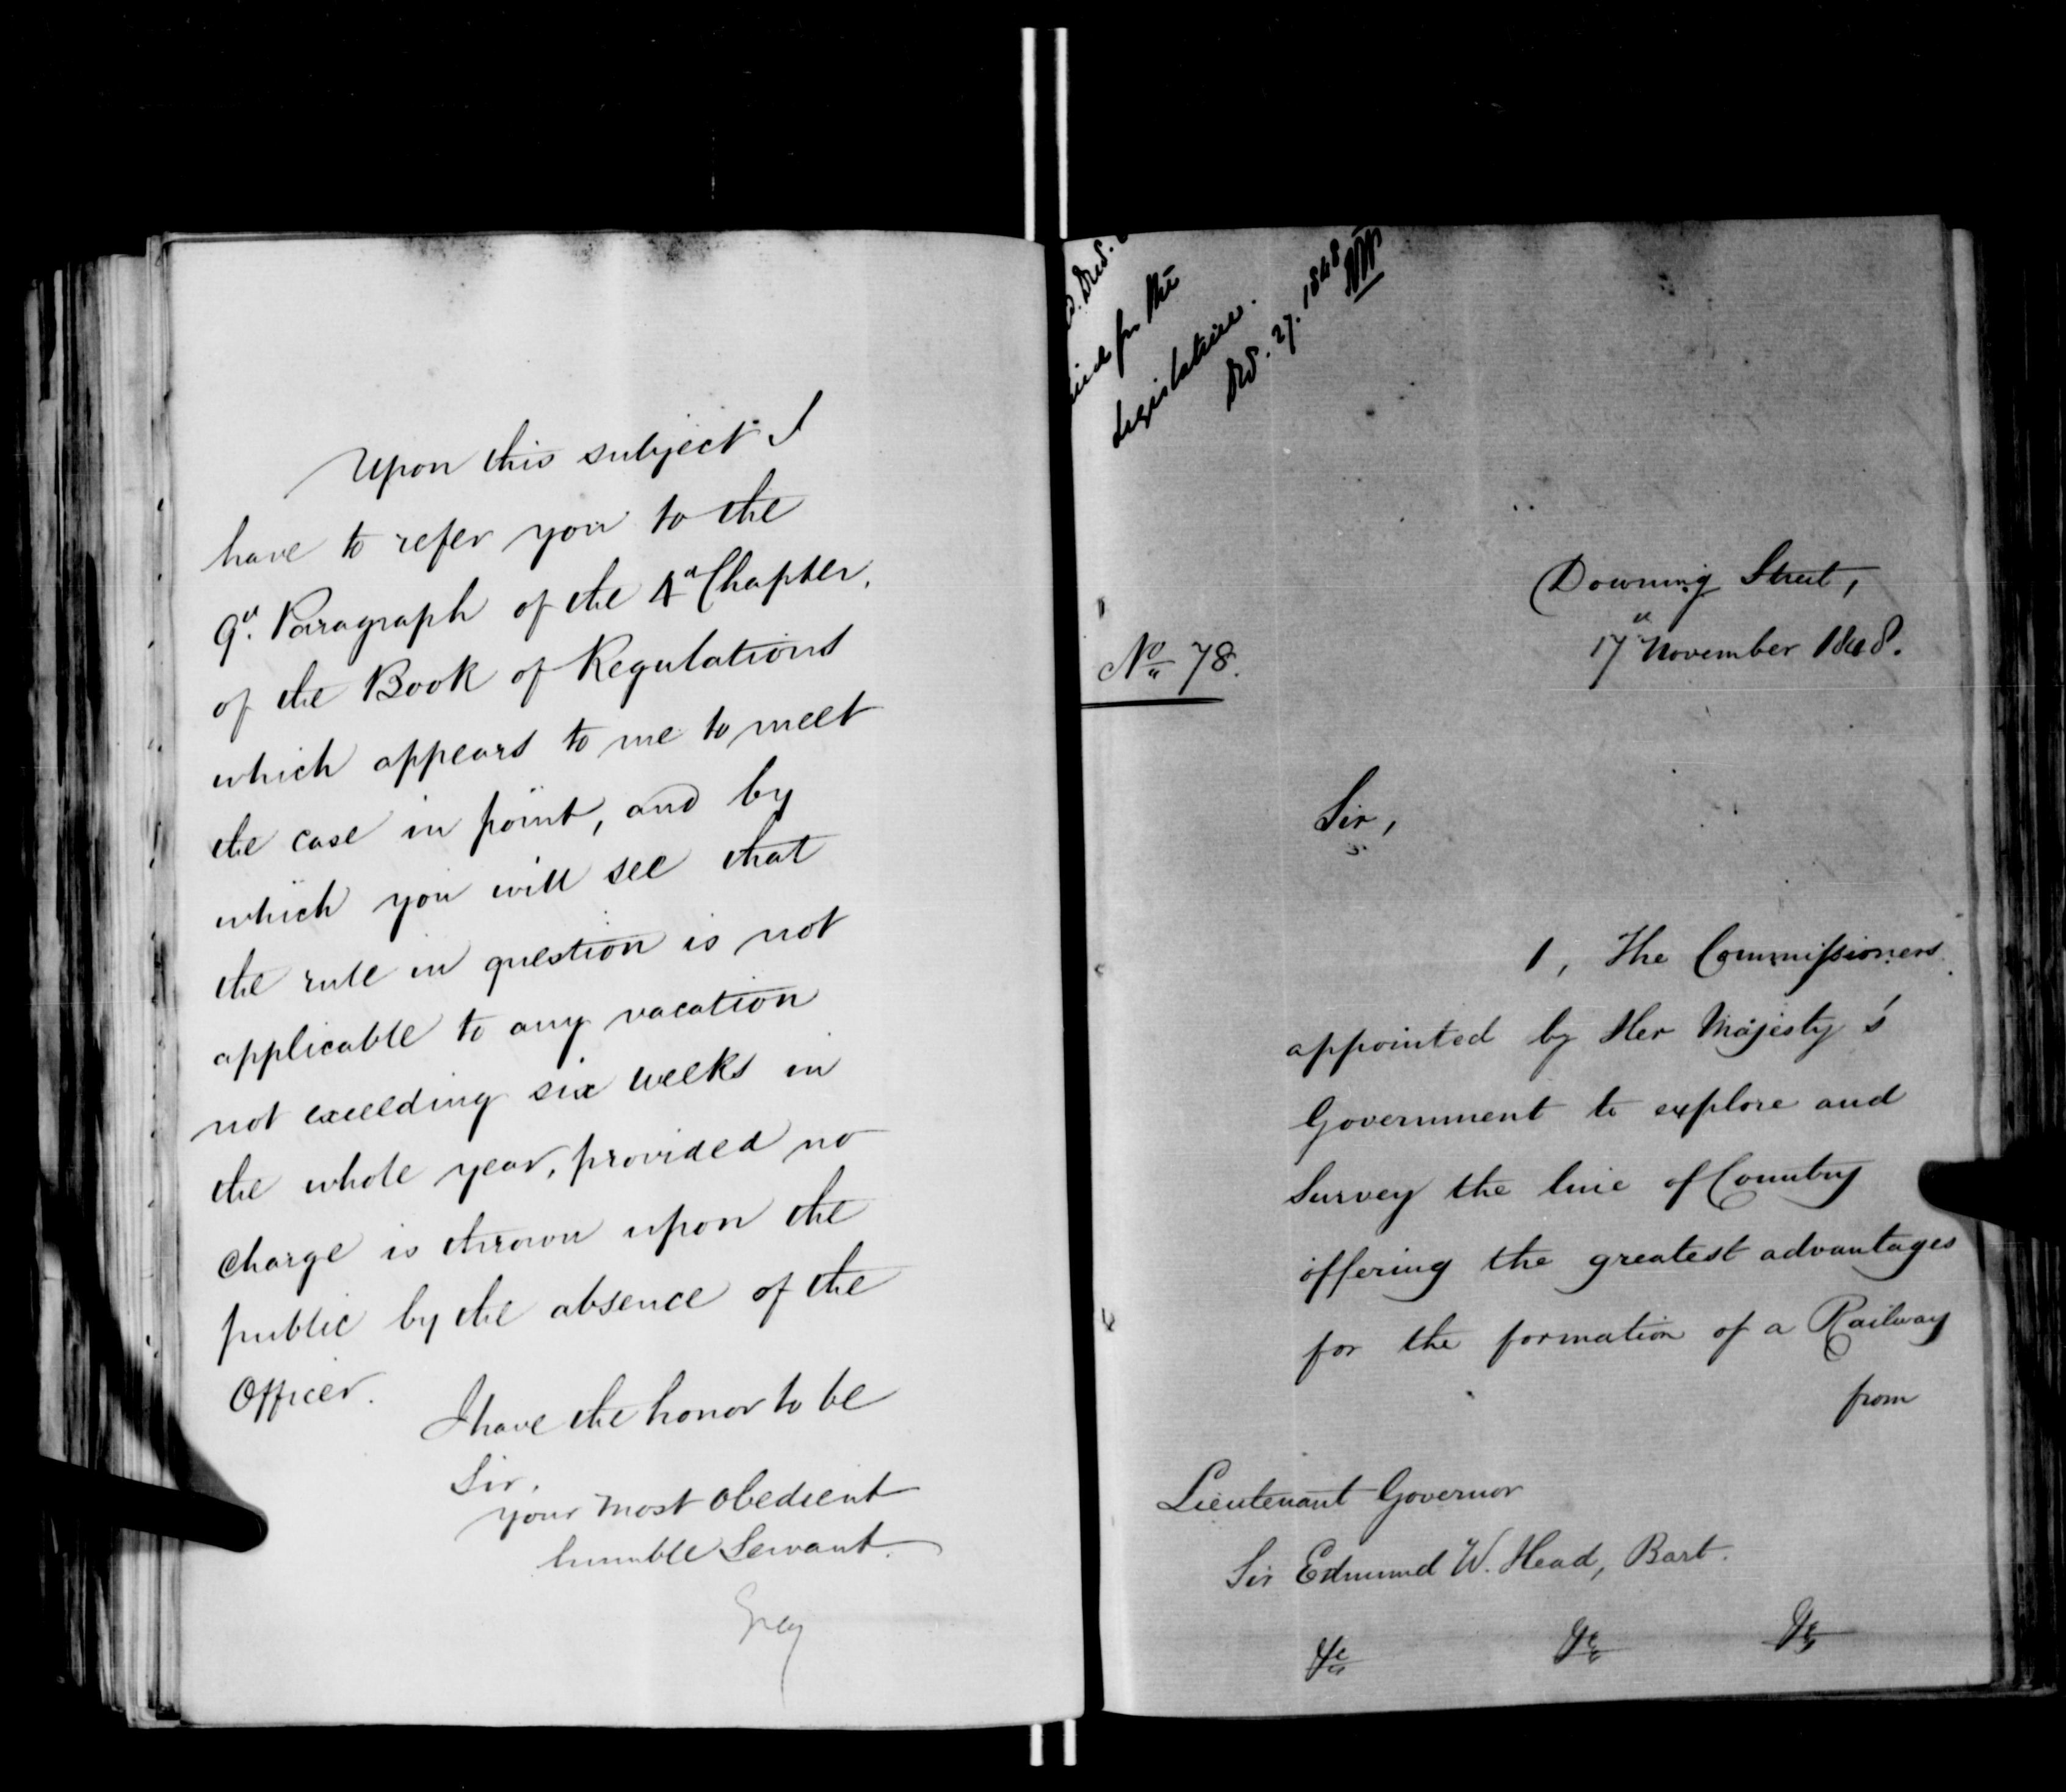 Upon this subject I
have to refer you to the
9th. Paragraph of the 4th Chapter,
of the Book of Regulations
which appears to me to meet
the case in point, and by
which you will see that
the rule in question is not
applicable to any vacation
not exceeding six weeks in
the whole year, provided no
charge is thrown upon the
public by the absence of the
Officer.
I have the honor to be
Sir,
your most obedient
humble Servant.
Grey
for the
Legislature.
27. 1848
Downing Street,
17th November 1848.
No 78.
Sir,
1, The Commissioners
appointed by Her Majesty's
Government to explore and
Survey the line of Country
offering the greatest advantages
for the formation of a Railway
from
Lieutenant Governor
Sir Edmund W. Head, Bart.
&c &c &c